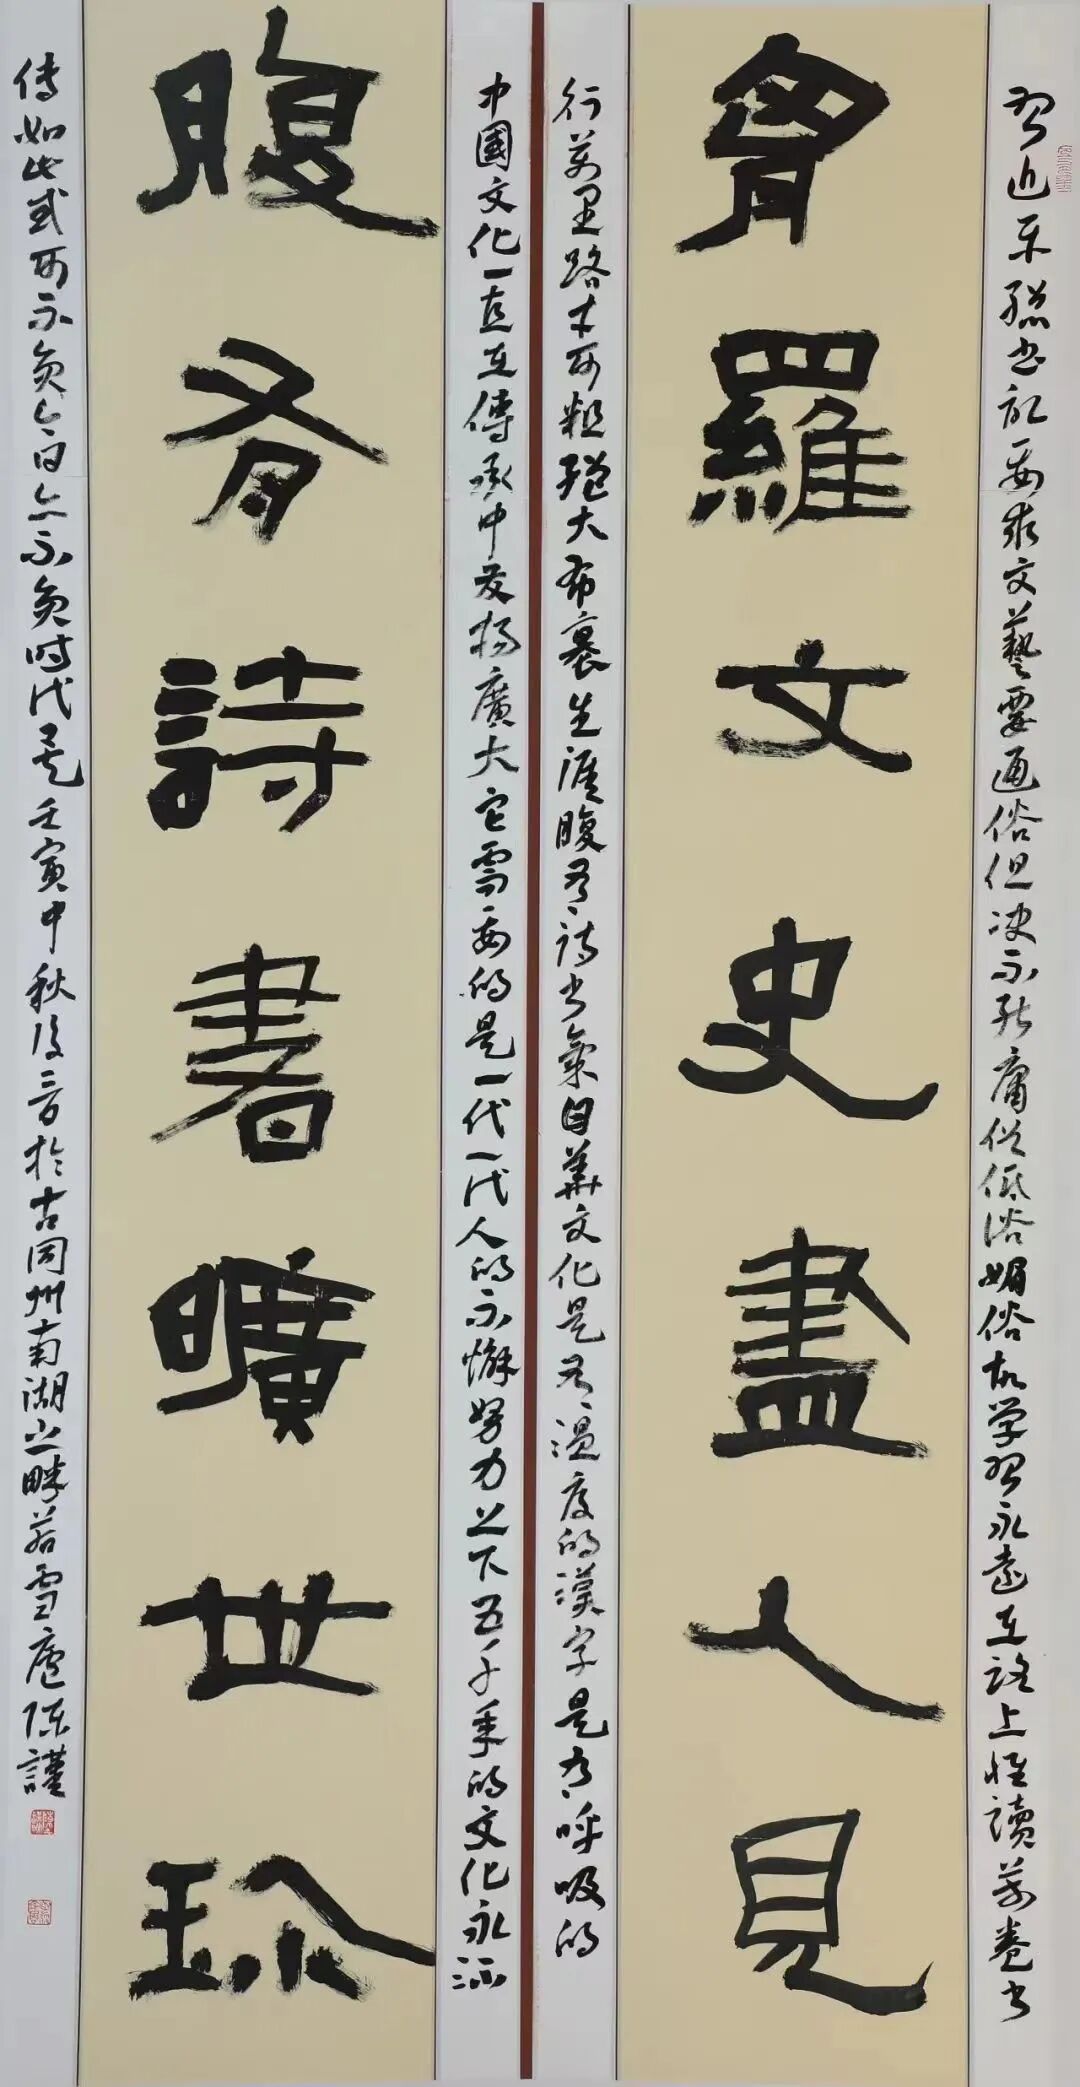 習近平總书記要求文藝要通俗但决不能庸俗低俗媚俗故学習永遠在路上惟讀萬卷书
胷羅文史盡人見
行萬里路才可粗繒大布裹生涯腹有詩书氣自華文化是有温度的漢字是有呼吸的
中國文化一直在傳承中发揚廣大它需要的是一代一代人的不懈努力上下五千年的文化永流
腹有詩書曠世珍
傳如此或可不負今日亦不負時代矣壬寅中秋後三日於古同州南湖之畔若雪廬陳謹